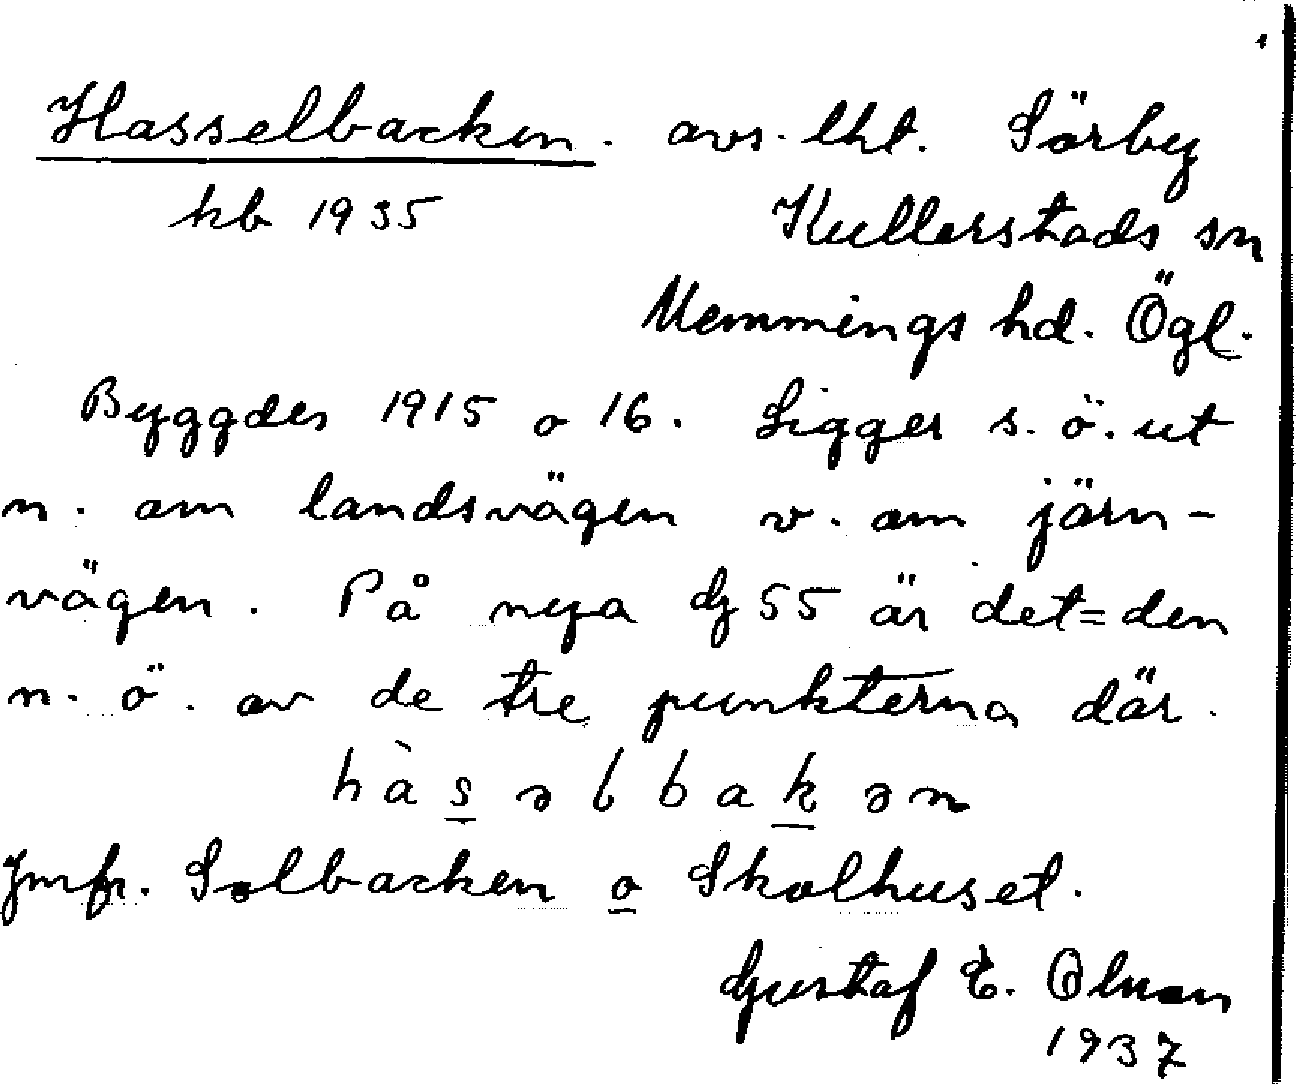 Hasselbacken. avs. lht. Sörby
kb 1935 Kullerstads sn
Memmings hd. Ögl.
Byggdes 1915 o 16. Ligger s. ö. ut
n. om landsvägen v. om järn-
vägen. På nya dg 55 är det = den
n. ö. av de tre punkterna där.
hàsəlbakən
Jmfr. Solbacken o Skolhuset.
Gustaf E.
1937